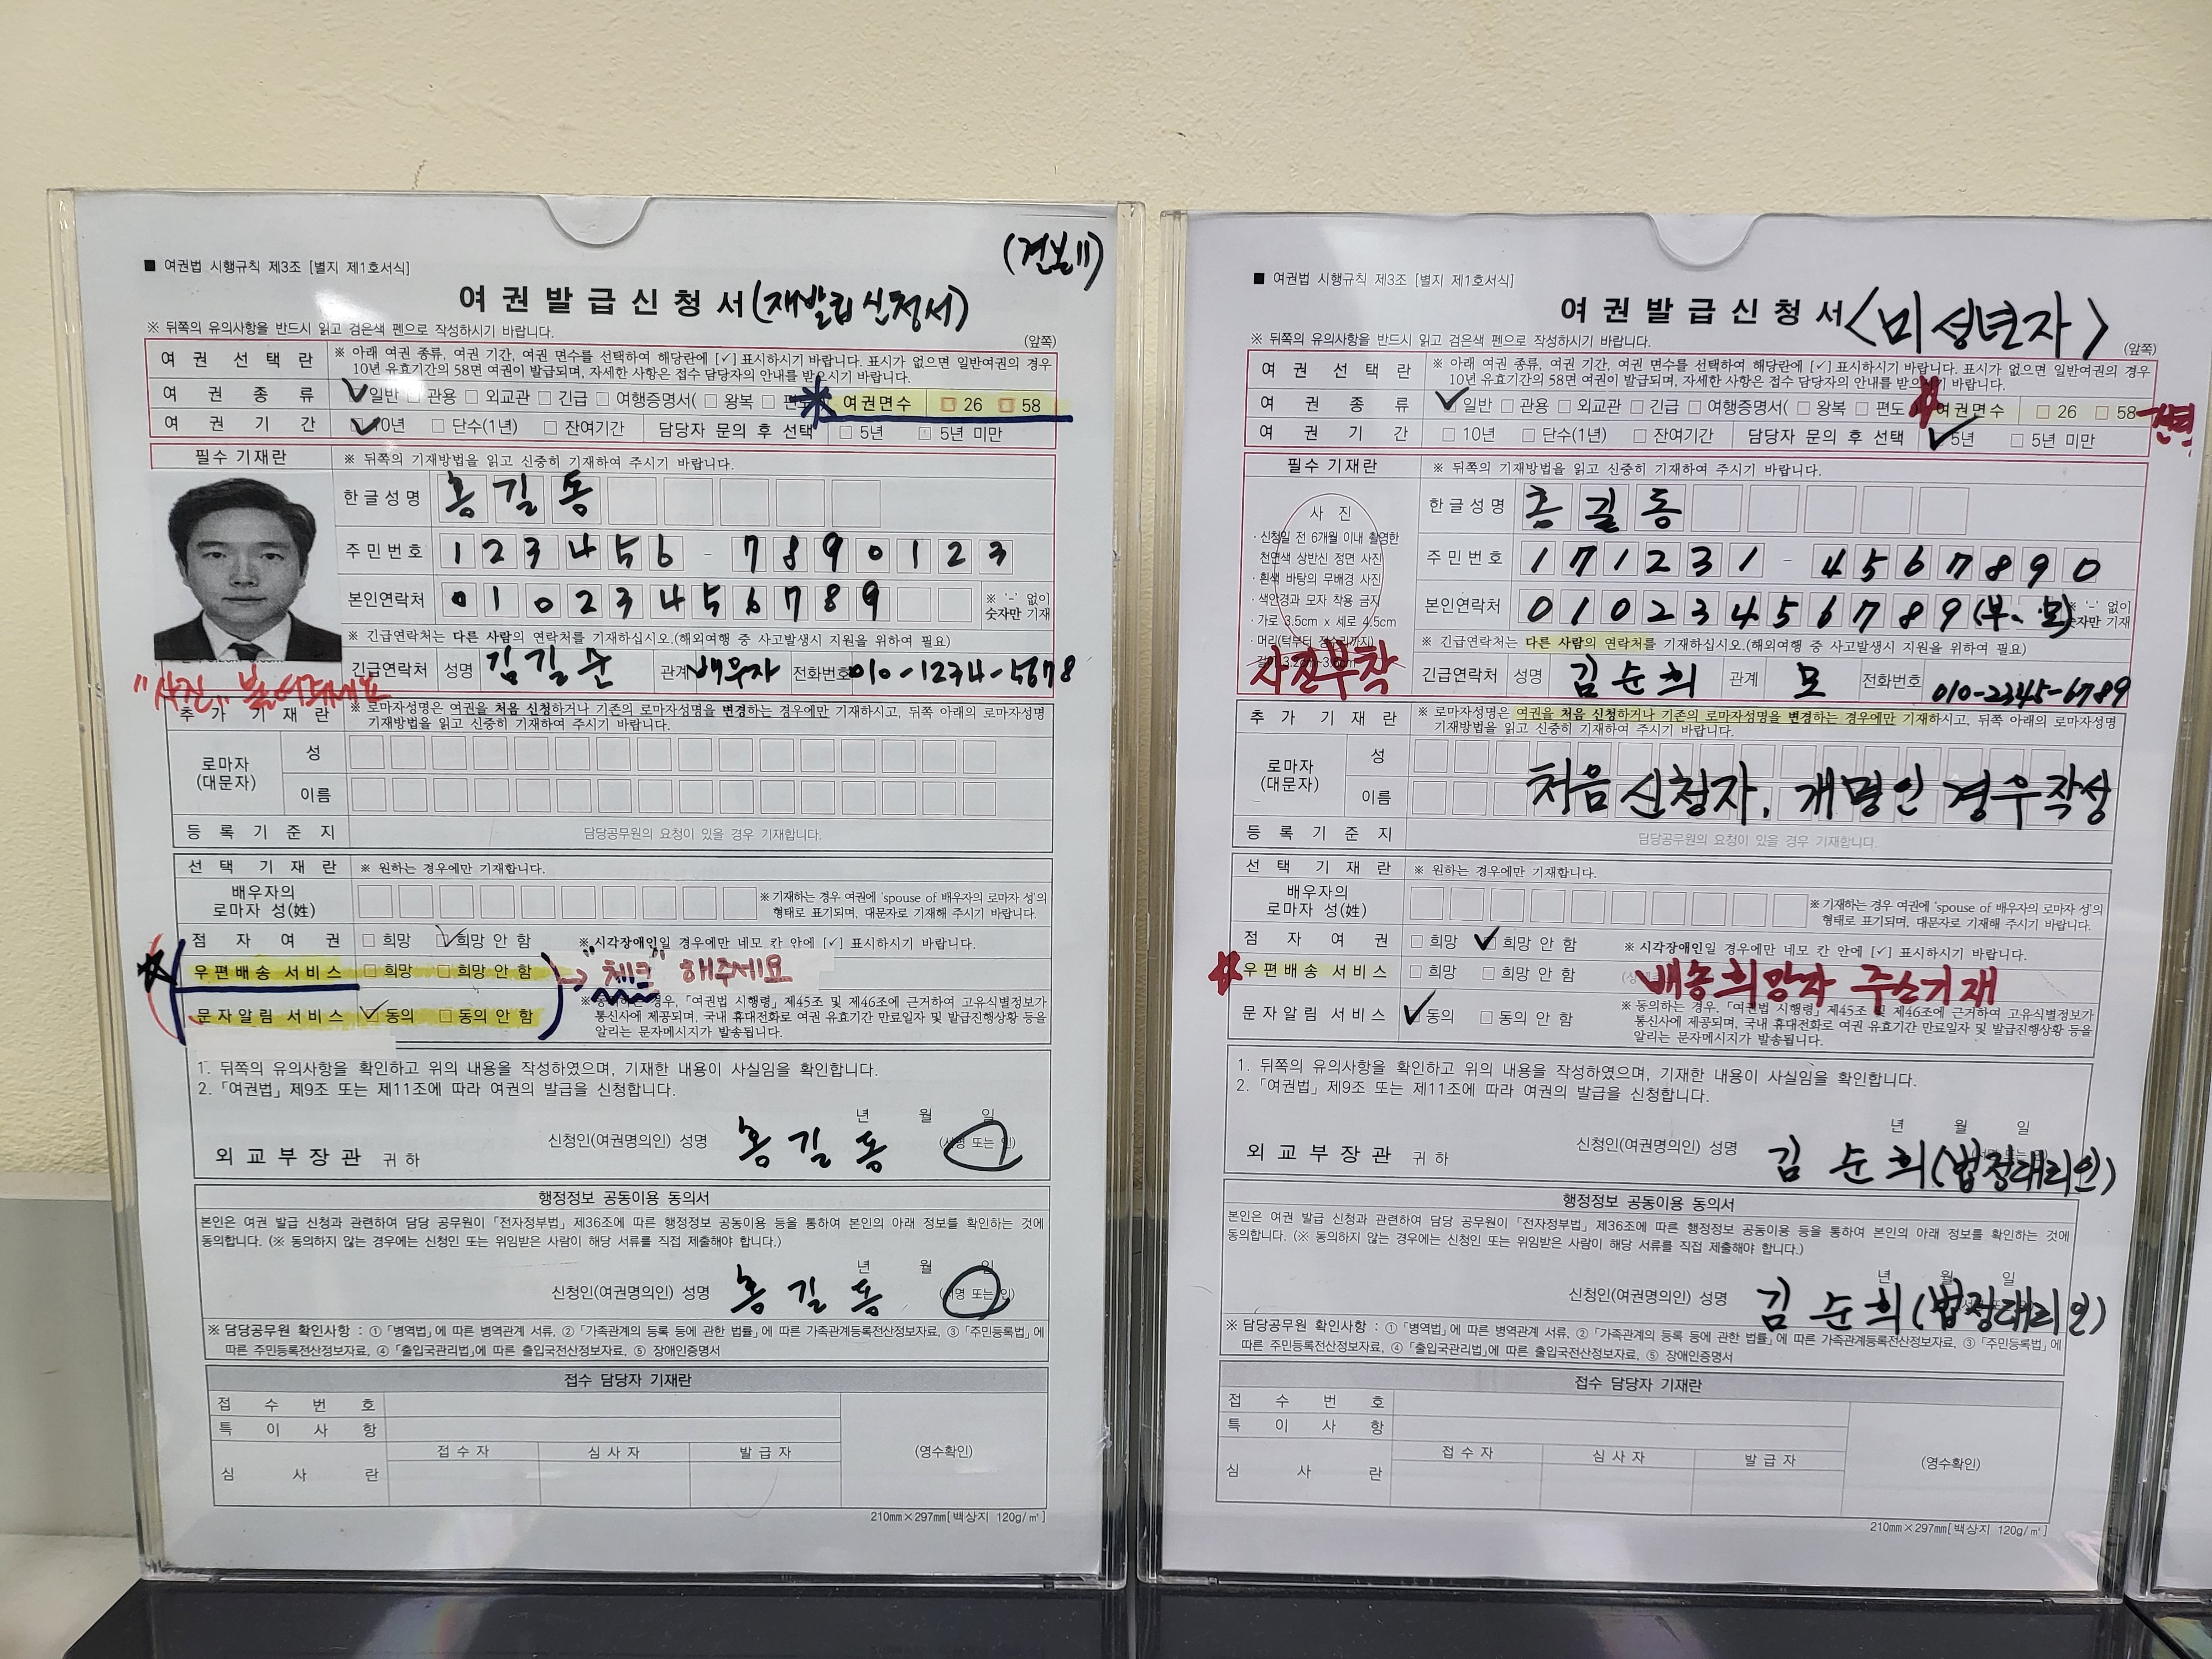 (견본!!)
■ 여권법 시행규칙 제3조 [별지 제1호서식]
여권발급신청서(재발급신청서)
※ 뒤쪽의 유의사항을 반드시 읽고 검은색 펜으로 작성하시기 바랍니다.
(앞쪽)
여권선택란 ※ 아래 여권 종류, 여권 기간, 여권 면수를 선택하여 해당란에 [✓] 표시하시기 바랍니다. 표시가 없으면 일반여권의 경우
10년 유효기간의 58면 여권이 발급되며, 자세한 사항은 접수 담당자의 안내를 받으시기 바랍니다.
여권종류 ✓일반 □ 관용 □ 외교관 □ 긴급 □ 여행증명서( □ 왕복 □ 편도 여권면수 □ 26 □ 58
여권기간 ✓10년 □ 단수(1년) □ 잔여기간 담당자 문의 후 선택 □ 5년 □ 5년 미만
필수 기재란 ※ 뒤쪽의 기재방법을 읽고 신중히 기재하여 주시기 바랍니다.
한글성명 홍길동
주민번호 123456 - 7890123
본인연락처 01023456789 ※ '-' 없이
숫자만 기재
※ 긴급연락처는 다른 사람의 연락처를 기재하십시오.(해외여행 중 사고발생시 지원을 위하여 필요)
긴급연락처 성명 김길순 관계 배우자 전화번호 010-1234-5678
"사진" 붙여주세요
추가기재란 ※ 로마자성명은 여권을 처음 신청하거나 기존의 로마자성명을 변경하는 경우에만 기재하시고, 뒤쪽 아래의 로마자성명
기재방법을 읽고 신중히 기재하여 주시기 바랍니다.
로마자
(대문자)
성
이름
등록기준지 담당공무원의 요청이 있을 경우 기재합니다.
선택기재란 ※ 원하는 경우에만 기재합니다.
배우자의
로마자 성(姓)
※ 기재하는 경우 여권에 'spouse of 배우자의 로마자 성'의
형태로 표기되며, 대문자로 기재해 주시기 바랍니다.
점자여권 □ 희망 ✓희망 안 함 ※ 시각장애인일 경우에만 네모 칸 안에 [✓] 표시하시기 바랍니다.
우편배송 서비스 □ 희망 □ 희망 안 함 → "체크" 해주세요
문자알림 서비스 ✓동의 □ 동의 안 함 ※ 동의하는 경우, 「여권법 시행령」 제45조 및 제46조에 근거하여 고유식별정보가
통신사에 제공되며, 국내 휴대전화로 여권 유효기간 만료일자 및 발급진행상황 등을
알리는 문자메시지가 발송됩니다.
1. 뒤쪽의 유의사항을 확인하고 위의 내용을 작성하였으며, 기재한 내용이 사실임을 확인합니다.
2. 「여권법」 제9조 또는 제11조에 따라 여권의 발급을 신청합니다.
년 월 일
신청인(여권명의인) 성명 홍길동 (서명 또는 인)
외교부장관 귀하
행정정보 공동이용 동의서
본인은 여권 발급 신청과 관련하여 담당 공무원이 「전자정부법」 제36조에 따른 행정정보 공동이용 등을 통하여 본인의 아래 정보를 확인하는 것에
동의합니다. (※ 동의하지 않는 경우에는 신청인 또는 위임받은 사람이 해당 서류를 직접 제출해야 합니다.)
년 월 일
신청인(여권명의인) 성명 홍길동 (서명 또는 인)
※ 담당공무원 확인사항 : ① 「병역법」에 따른 병역관계 서류, ② 「가족관계의 등록 등에 관한 법률」에 따른 가족관계등록전산정보자료, ③ 「주민등록법」에
따른 주민등록전산정보자료, ④ 「출입국관리법」에 따른 출입국전산정보자료, ⑤ 장애인증명서
접수 담당자 기재란
접수번호
특이사항
접수자 심사자 발급자 (영수확인)
심사란
210mm×297mm[백상지 120g/㎡]
■ 여권법 시행규칙 제3조 [별지 제1호서식]
여권발급신청서<미성년자>
※ 뒤쪽의 유의사항을 반드시 읽고 검은색 펜으로 작성하시기 바랍니다.
(앞쪽)
여권선택란 ※ 아래 여권 종류, 여권 기간, 여권 면수를 선택하여 해당란에 [✓] 표시하시기 바랍니다. 표시가 없으면 일반여권의 경우
10년 유효기간의 58면 여권이 발급되며, 자세한 사항은 접수 담당자의 안내를 받으시기 바랍니다.
여권종류 ✓일반 □ 관용 □ 외교관 □ 긴급 □ 여행증명서( □ 왕복 □ 편도 여권면수 □ 26 □ 58
여권기간 □ 10년 □ 단수(1년) □ 잔여기간 담당자 문의 후 선택 ✓5년 □ 5년 미만
필수 기재란 ※ 뒤쪽의 기재방법을 읽고 신중히 기재하여 주시기 바랍니다.
사 진
· 신청일 전 6개월 이내 촬영한
천연색 상반신 정면 사진
· 흰색 바탕의 무배경 사진
· 색안경과 모자 착용 금지
· 가로 3.5cm x 세로 4.5cm
· 머리(턱부터 정수리까지)
사진부착
한글성명 홍길동
주민번호 171231 - 4567890
본인연락처 01023456789(부.모) ※ '-' 없이
숫자만 기재
※ 긴급연락처는 다른 사람의 연락처를 기재하십시오.(해외여행 중 사고발생시 지원을 위하여 필요)
긴급연락처 성명 김순희 관계 모 전화번호 010-2345-6789
추가기재란 ※ 로마자성명은 여권을 처음 신청하거나 기존의 로마자성명을 변경하는 경우에만 기재하시고, 뒤쪽 아래의 로마자성명
기재방법을 읽고 신중히 기재하여 주시기 바랍니다.
로마자
(대문자)
성
이름
처음 신청자, 개명인 경우작성
등록기준지 담당공무원의 요청이 있을 경우 기재합니다.
선택기재란 ※ 원하는 경우에만 기재합니다.
배우자의
로마자 성(姓)
※ 기재하는 경우 여권에 'spouse of 배우자의 로마자 성'의
형태로 표기되며, 대문자로 기재해 주시기 바랍니다.
점자여권 □ 희망 ✓희망 안 함 ※ 시각장애인일 경우에만 네모 칸 안에 [✓] 표시하시기 바랍니다.
우편배송 서비스 □ 희망 □ 희망 안 함 배송희망자 주소기재
문자알림 서비스 ✓동의 □ 동의 안 함 ※ 동의하는 경우, 「여권법 시행령」 제45조 및 제46조에 근거하여 고유식별정보가
통신사에 제공되며, 국내 휴대전화로 여권 유효기간 만료일자 및 발급진행상황 등을
알리는 문자메시지가 발송됩니다.
1. 뒤쪽의 유의사항을 확인하고 위의 내용을 작성하였으며, 기재한 내용이 사실임을 확인합니다.
2. 「여권법」 제9조 또는 제11조에 따라 여권의 발급을 신청합니다.
년 월 일
신청인(여권명의인) 성명 김순희(법정대리인)
외교부장관 귀하
행정정보 공동이용 동의서
본인은 여권 발급 신청과 관련하여 담당 공무원이 「전자정부법」 제36조에 따른 행정정보 공동이용 등을 통하여 본인의 아래 정보를 확인하는 것에
동의합니다. (※ 동의하지 않는 경우에는 신청인 또는 위임받은 사람이 해당 서류를 직접 제출해야 합니다.)
년 월 일
신청인(여권명의인) 성명 김순희(법정대리인)
※ 담당공무원 확인사항 : ① 「병역법」에 따른 병역관계 서류, ② 「가족관계의 등록 등에 관한 법률」에 따른 가족관계등록전산정보자료, ③ 「주민등록법」에
따른 주민등록전산정보자료, ④ 「출입국관리법」에 따른 출입국전산정보자료, ⑤ 장애인증명서
접수 담당자 기재란
접수번호
특이사항
접수자 심사자 발급자 (영수확인)
심사란
210mm×297mm[백상지 120g/㎡]